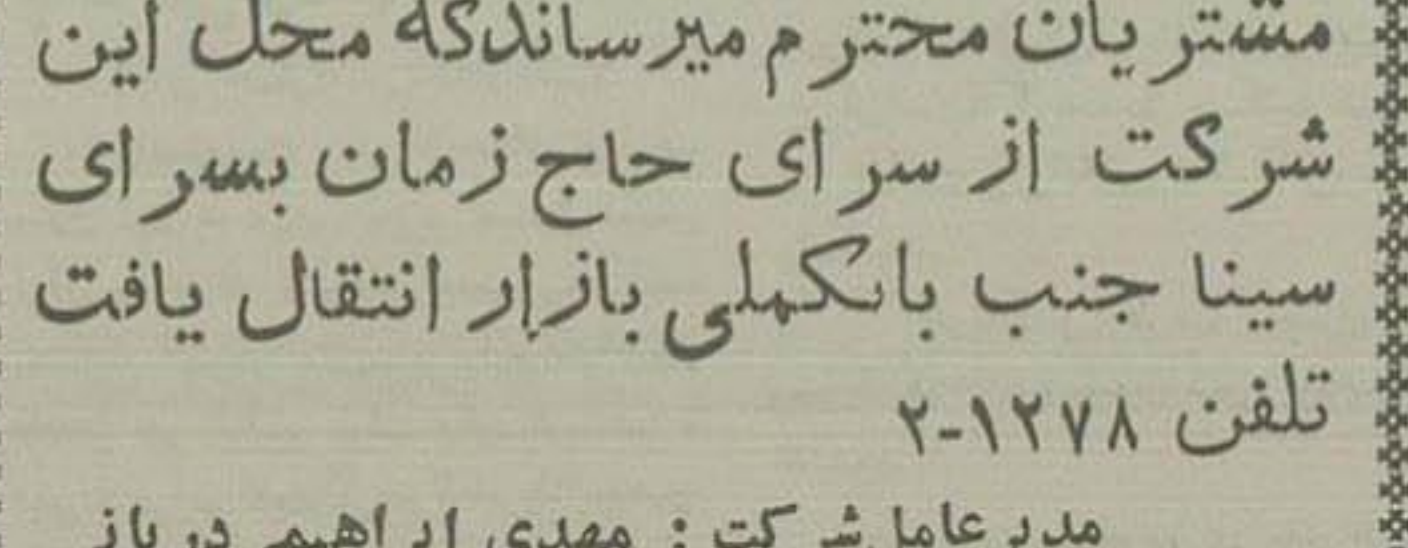 مشتریان محترم میرساندکه محل این
شرکت از سرای حاج زمان بسرای
سینا جنب بانکملی بازار انتقال یافت
تلفن ۱۲۷۸-۲
مدیر عامل شرکت : مهدی ابراهیم دریانی